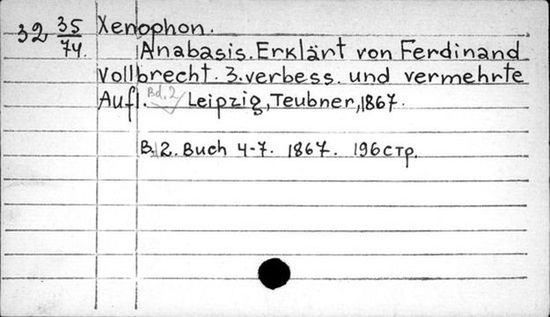 32 35/74. Xenophon.
Anabasis. Erklärt von Ferdinand
Vollbrecht. 3. verbess. und vermehrte
Aufl. Bd. 2 Leipzig, Teubner, 1867.
Bd 2. Buch 4-7. 1867. 196 стр.